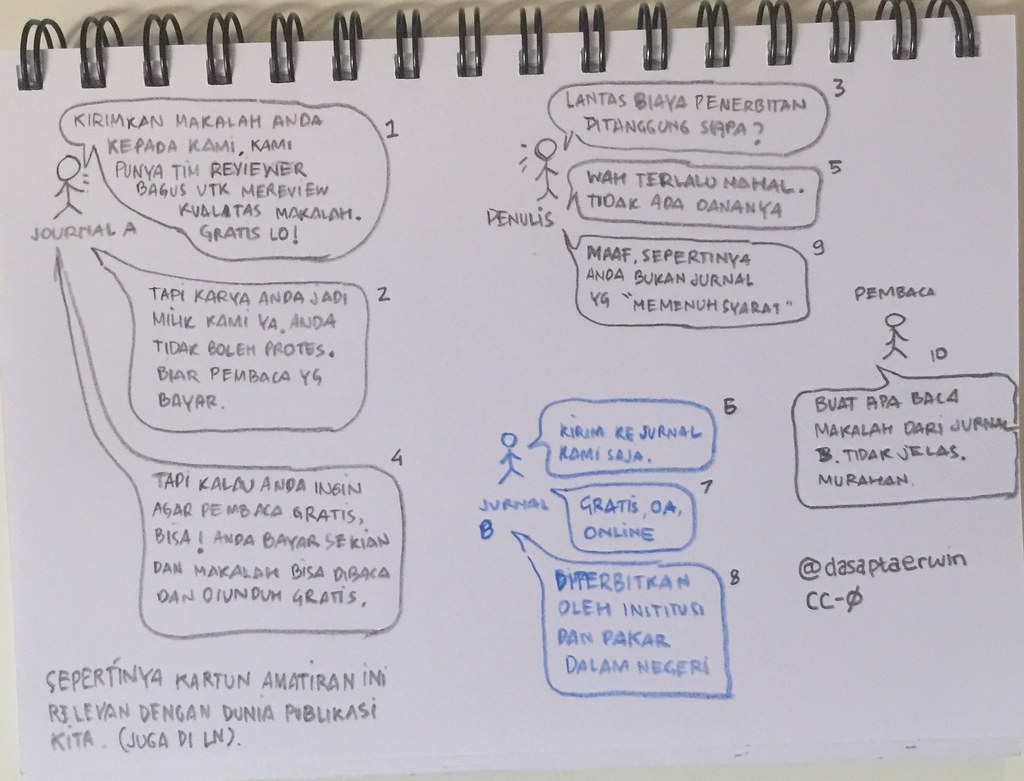 KIRIMKAN MAKALAH ANDA
KEPADA KAMI, KAMI
PUNYA TIM REVIEWER
BAGUS UTK MEREVIEW
KUALATAS MAKALAH.
GRATIS LO!
1
JOURNAL A
TAPI KARYA ANDA JADI
MILIK KAMI YA. ANDA
TIDAK BOLEH PROTES.
BIAR PEMBACA YG
BAYAR.
2
LANTAS BIAYA PENERBITAN
DITANGGUNG SIAPA?
3
PENULIS
TAPI KALAU ANDA INGIN
AGAR PEMBACA GRATIS,
BISA! ANDA BAYAR SEKIAN
DAN MAKALAH BISA DIBACA
DAN DIUNDUH GRATIS.
4
WAH TERLALU MAHAL.
TIDAK ADA DANANYA
5
KIRIM KE JURNAL
KAMI SAJA.
6
JURNAL
B
GRATIS, OA,
ONLINE
7
DITERBITKAN
OLEH INSTITUSI
DAN PAKAR
DALAM NEGERI
8
MAAF, SEPERTINYA
ANDA BUKAN JURNAL
YG "MEMENUH SYARAT"
9
PEMBACA
10
BUAT APA BACA
MAKALAH DARI JURNAL
B. TIDAK JELAS.
MURAHAN.
@dasaptaerwin
CC-Ø
SEPERTINYA KARTUN AMATIRAN INI
RELEVAN DENGAN DUNIA PUBLIKASI
KITA. (JUGA DI LN).